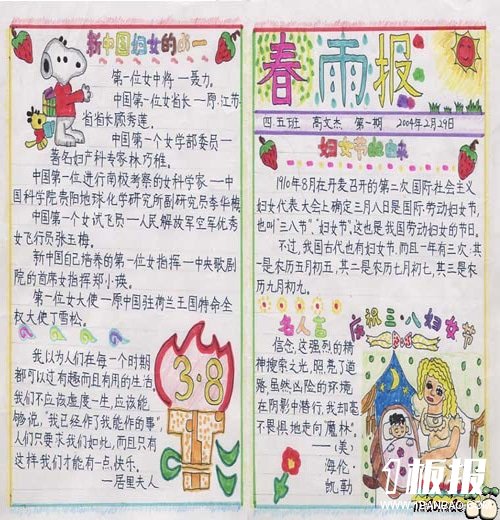 新中国妇女的小一
第一位女中将一聂力。
中国第一位女省长一原江苏
省省长顾秀莲。
中国第一个女学部委员一
著名妇产科专家林巧稚。
中国第一位进行南极考察的女科学家一中
国科学院贵阳地球化学研究所副研究员李华梅
中国第一个女试飞员一人民解放军空军优秀
女飞行员张玉梅。
新中国自己培养的第一位女指挥一中央歌剧
院的首席女指郑小瑛。
第一位女大使一原中国驻荷兰王国特命全
权大使丁雪松。
我以为人们在每一个时期
都可以过有趣而且有用的生活。
我们不应该虚度一生,应该能
够说,"我已经作了我能作的事"
人们只要求我们如此,而且只有
这样我们才能有一点快乐。
一居里夫人
3·8
春雨报
四五班 高文杰 第一期 2004年2月29日
妇女节的由来
1910年8月在丹麦召开的第二次国际社会主义
妇女代表大会上确定三月八日是国际劳动妇女节,
也叫"三八节"。"妇女节",这也是我国劳动妇女的节日。
不过,我国古代也有妇女节,而且一年有三次,其
一是农历五月初五,其二是农历七月初七,其三是农
历九月初九。
名人言
信念,这强烈的精
神搜索之光,照亮了道
路,虽然凶险的环境
在阴影中潜行,我却毫
不畏惧地走向"魔林"
一〔美〕
海伦·
凯勒
庆祝三·八妇女节
1板报
1BANBAO.COM